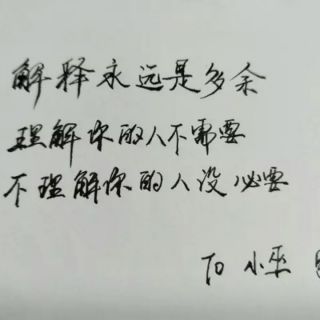 解释永远是多余
理解你的人不需要
不理解你的人没必要
To 小巫